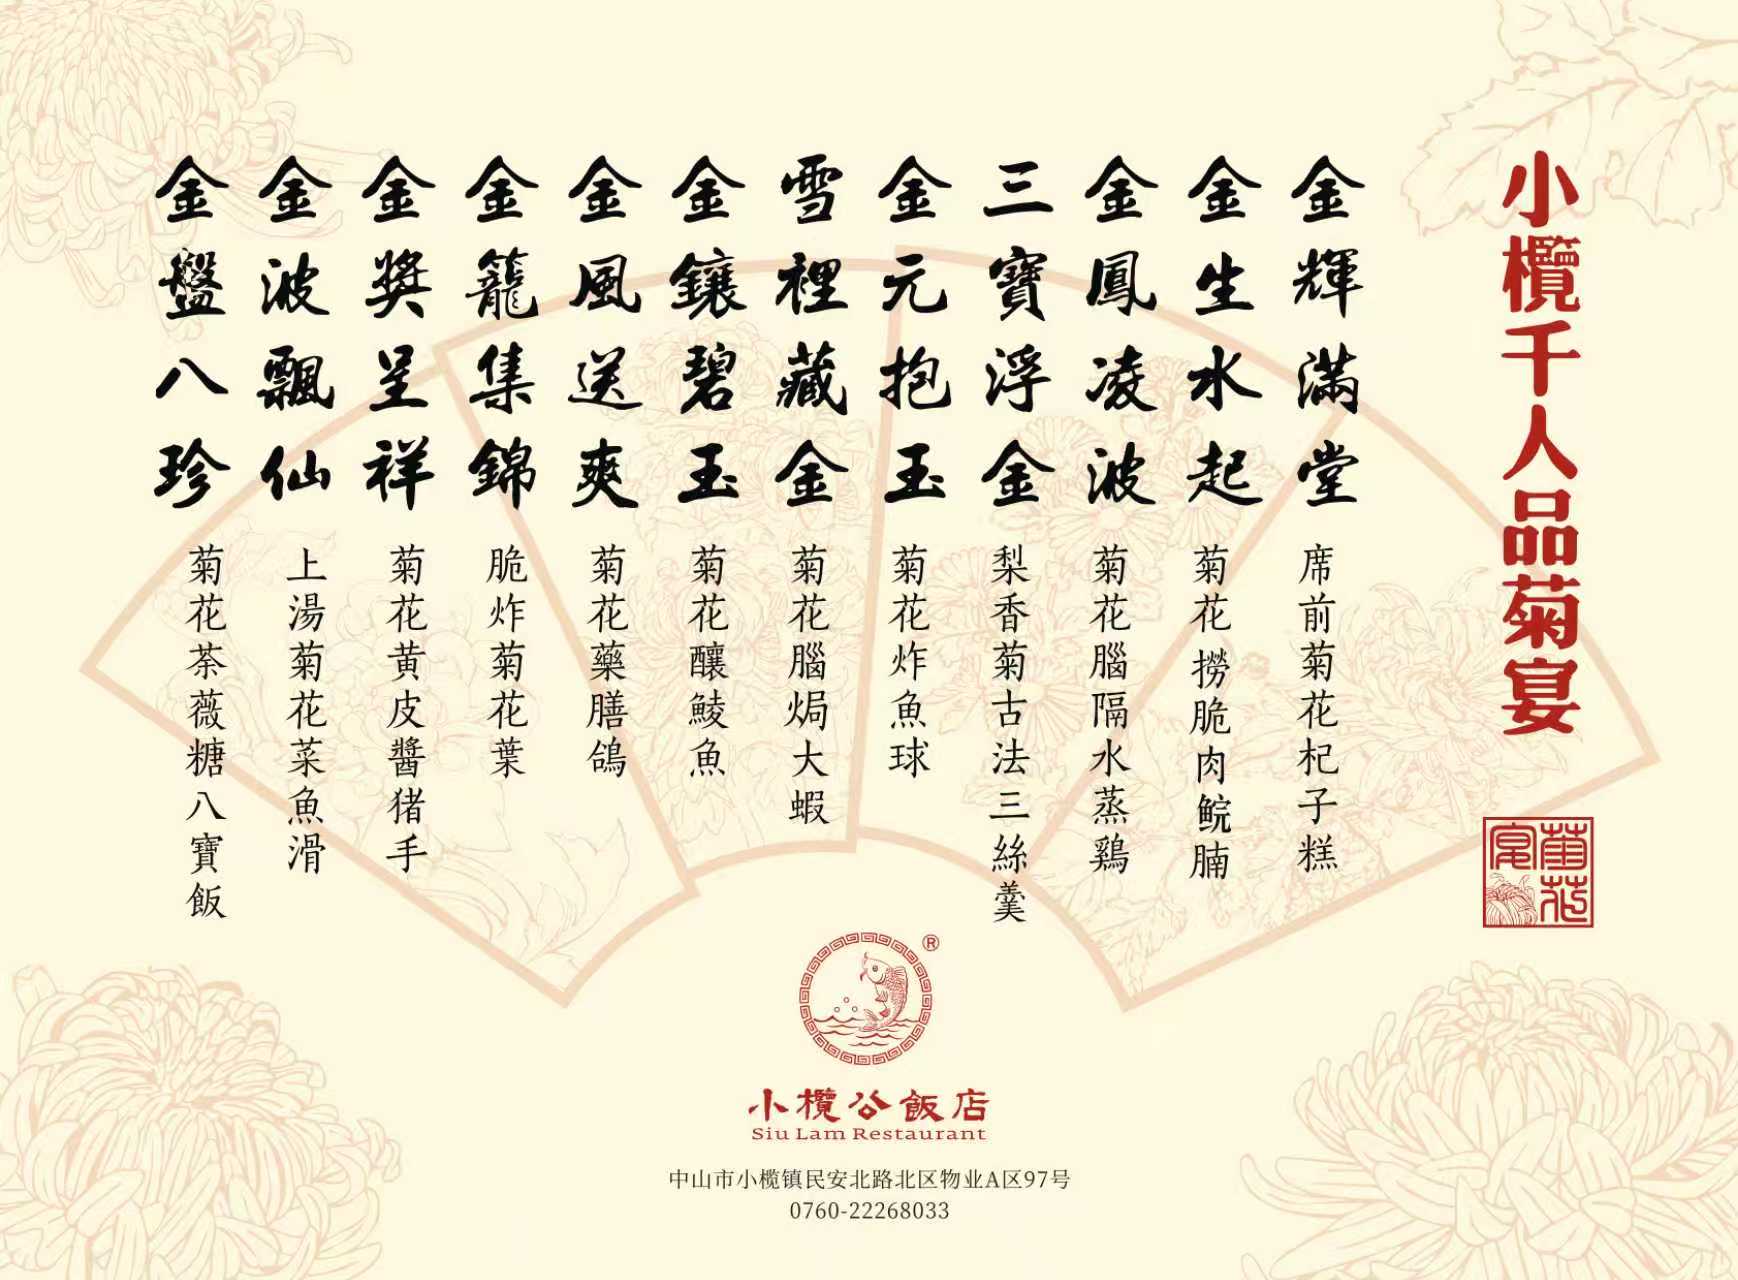 小欖千人品菊宴
菊花宴
金輝滿堂
席前菊花杞子糕
金生水起
菊花撈脆肉鯇腩
金鳳凌波
菊花腦隔水蒸鷄
三寶浮金
梨香菊古法三絲羹
金元抱玉
菊花炸魚球
雪裡藏金
菊花腦焗大蝦
金鑲碧玉
菊花釀鯪魚
金風送爽
菊花藥膳鴿
金籠集錦
脆炸菊花葉
金獎呈祥
菊花黄皮醬猪手
金波飄仙
上湯菊花菜魚滑
金盤八珍
菊花荼薇糖八寶飯
®
小欖公飯店
Siu Lam Restaurant
中山市小榄镇民安北路北区物业A区97号
0760-22268033